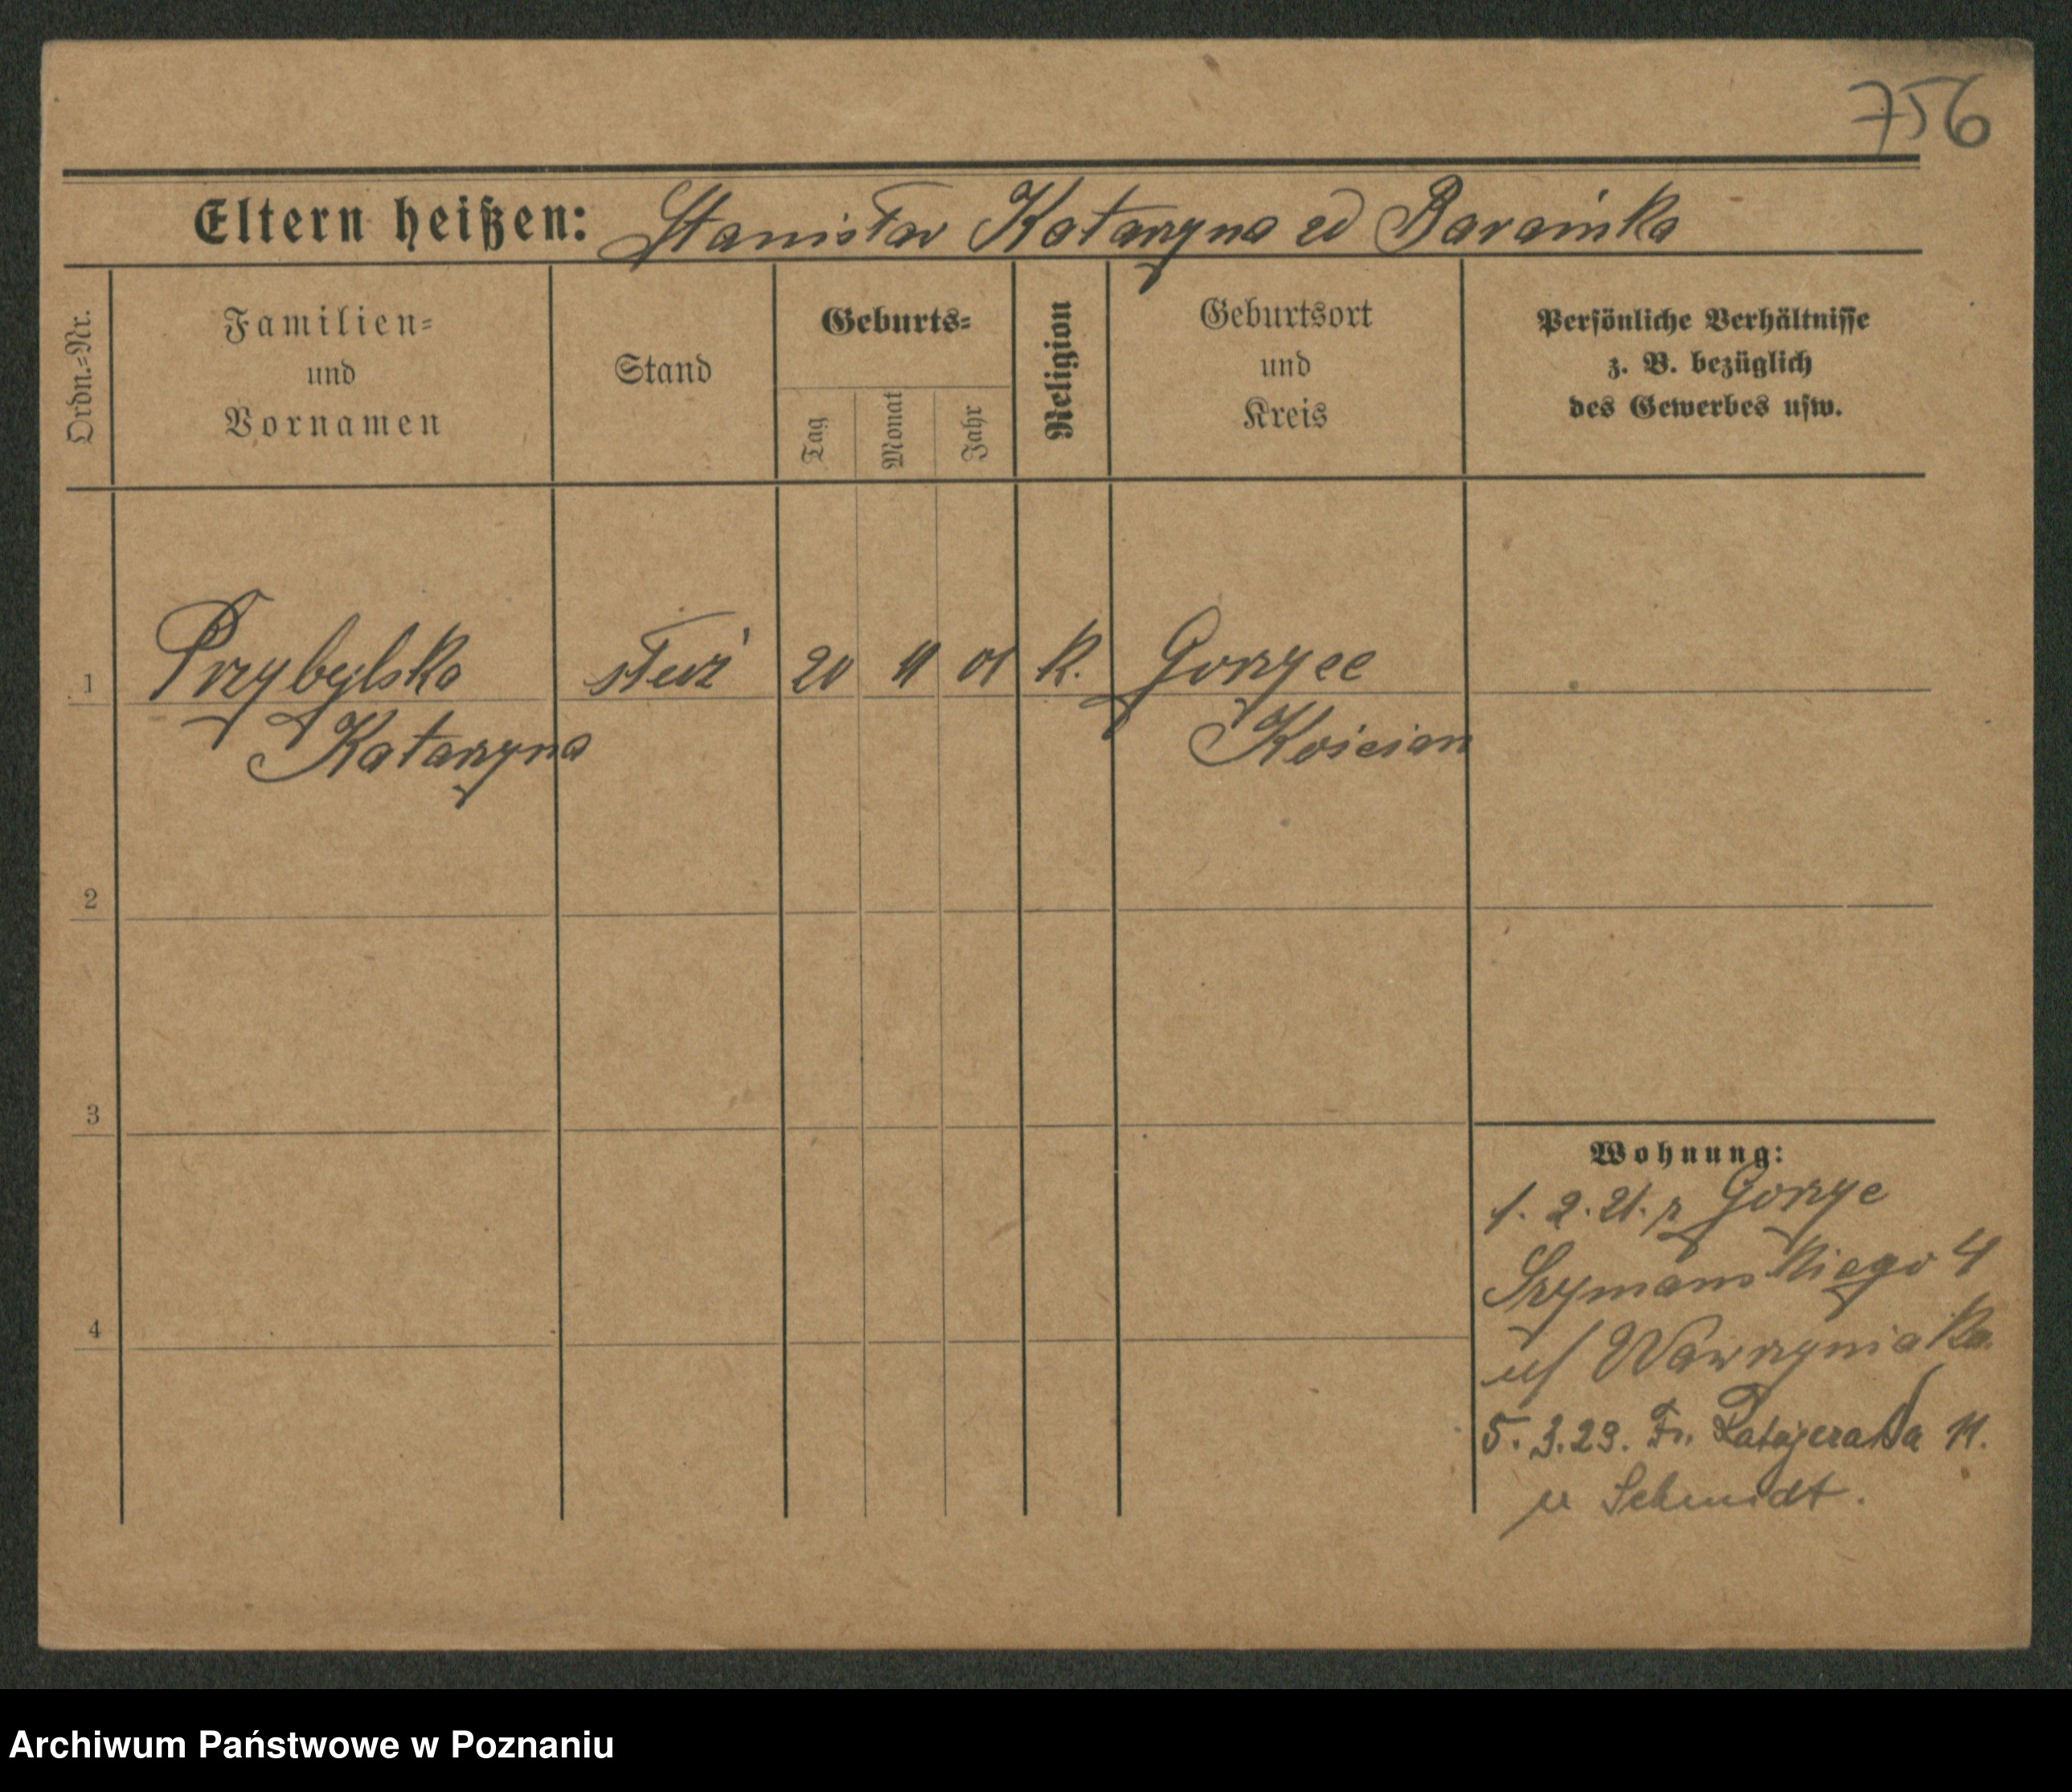 756
Eltern heißen: Stanisław Katarzyna
Ordn.=Nr.
Familien=
und
Vornamen
Stand
Geburts=
Tag
Monat
Jahr
Religion
Geburtsort
und
Kreis
Persönliche Verhältnisse
z. B. bezüglich
des Gewerbes usw.
1 Przybylska służ 20 11 01 k. Gorzyce
Katarzyna Kościan
2
3
4
Wohnung:
1. 2. 21. z Gorzyc
Szymańskiego 4
u/ Wawrzyniaka
5. 3. 23. Fr. Ratajczaka 11.
u Schmidt.
Archiwum Państwowe w Poznaniu